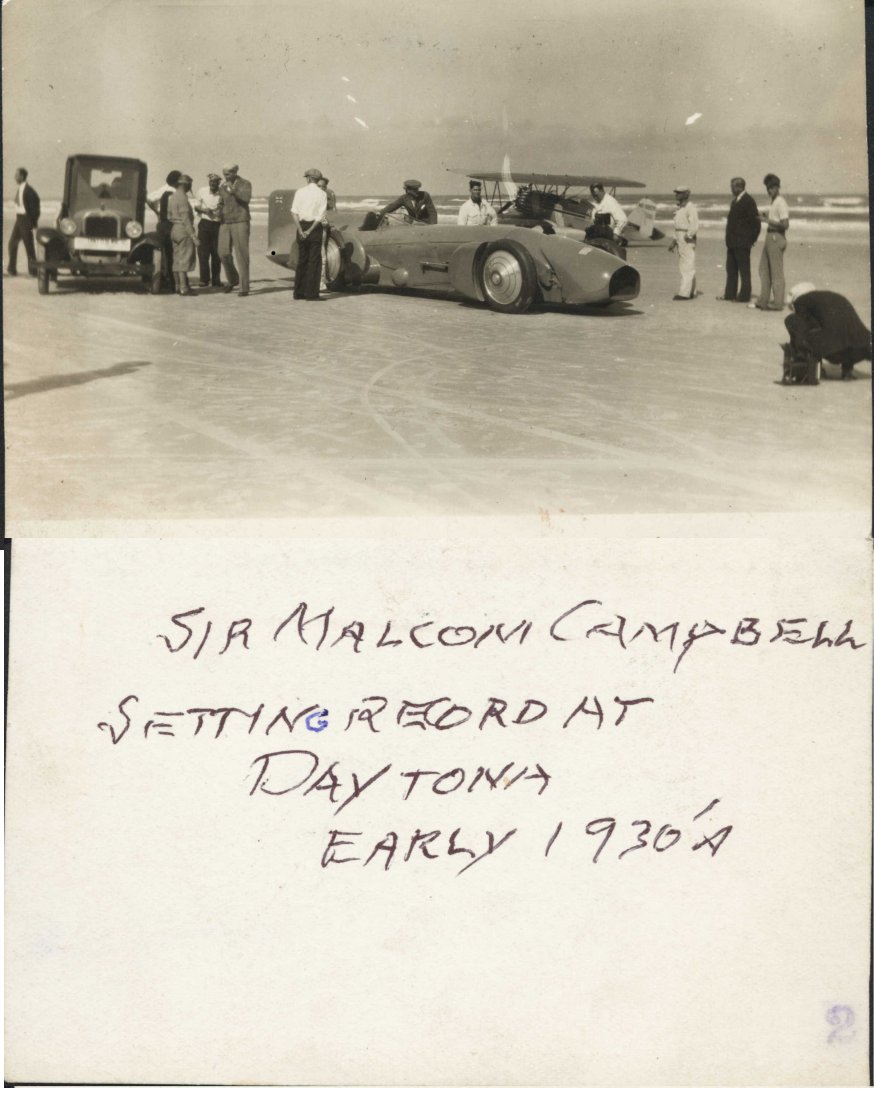 SIR MALCOM CAMPBELL
SETTING RECORD AT
DAYTONA
EARLY 1930's
2